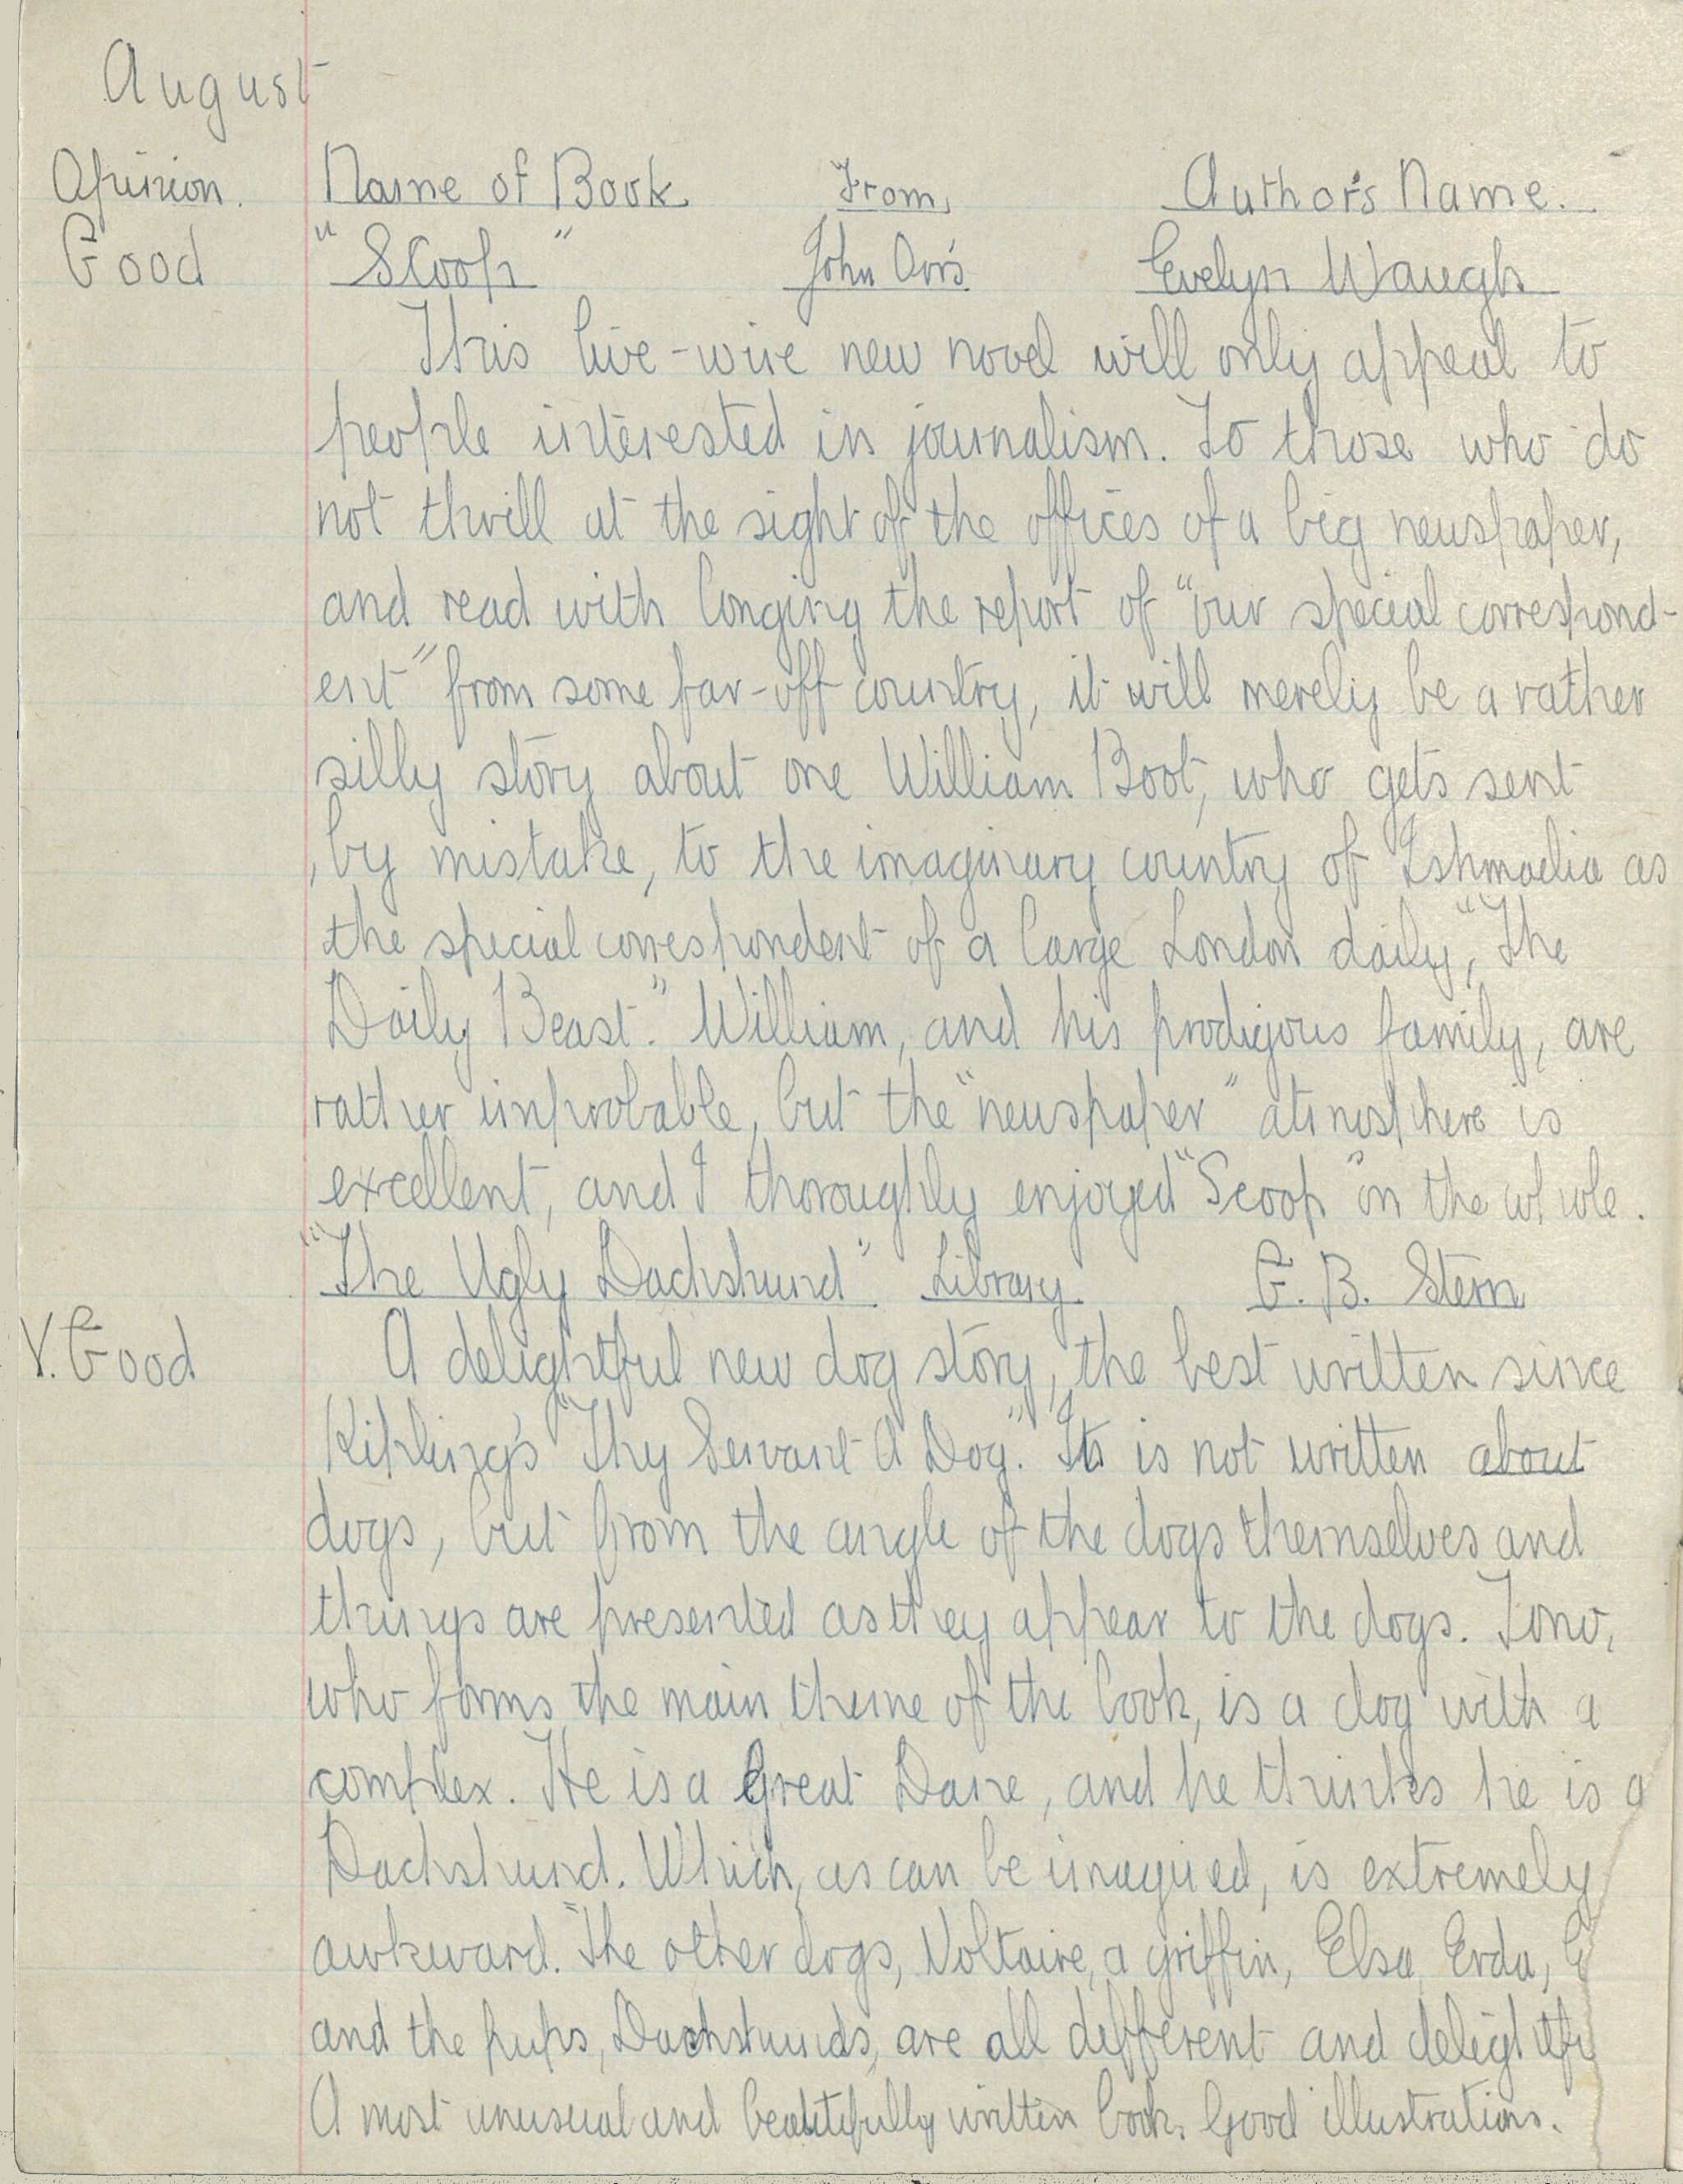 August
Opinion. Name of Book. From, Author's Name.
Good "Scoop" John Orr's Evelyn Waugh
This live-wire new novel will only appeal to
people interested in journalism. To those who do
not thrill at the sight of the offices of a big newspaper,
and read with longing the report of "our special correspond-
ent" from some far-off country, it will merely be a rather
silly story about one William Boot, who gets sent
, by mistake, to the imaginary country of Ishmaelia as
the special correspondent of a large London daily, "The
Daily Beast." William, and his prodigous family, are
rather improbable, but the "newspaper" atmosphere is
excellent, and I thoroughly enjoyed "Scoop" on the whole.
"The Ugly Dachshund" Library G. B. Stern
V. Good A delightful new dog story, the best written since
Kipling's "Thy Servant A Dog." It is not written about
dogs, but from the angle of the dogs themselves and
things are presented as they appear to the dogs. Tono,
who forms the main theme of the book, is a dog with a
complex. He is a Great Dane, and he thinks he is a
Dachshund. Which, as can be imagined, is extremely
awkward. The other dogs, Voltaire, a griffin, Elsa, Erda,
and the pups, Dachshunds, are all different and delightfu
A most unusual and beautifully written book. Good illustrations.